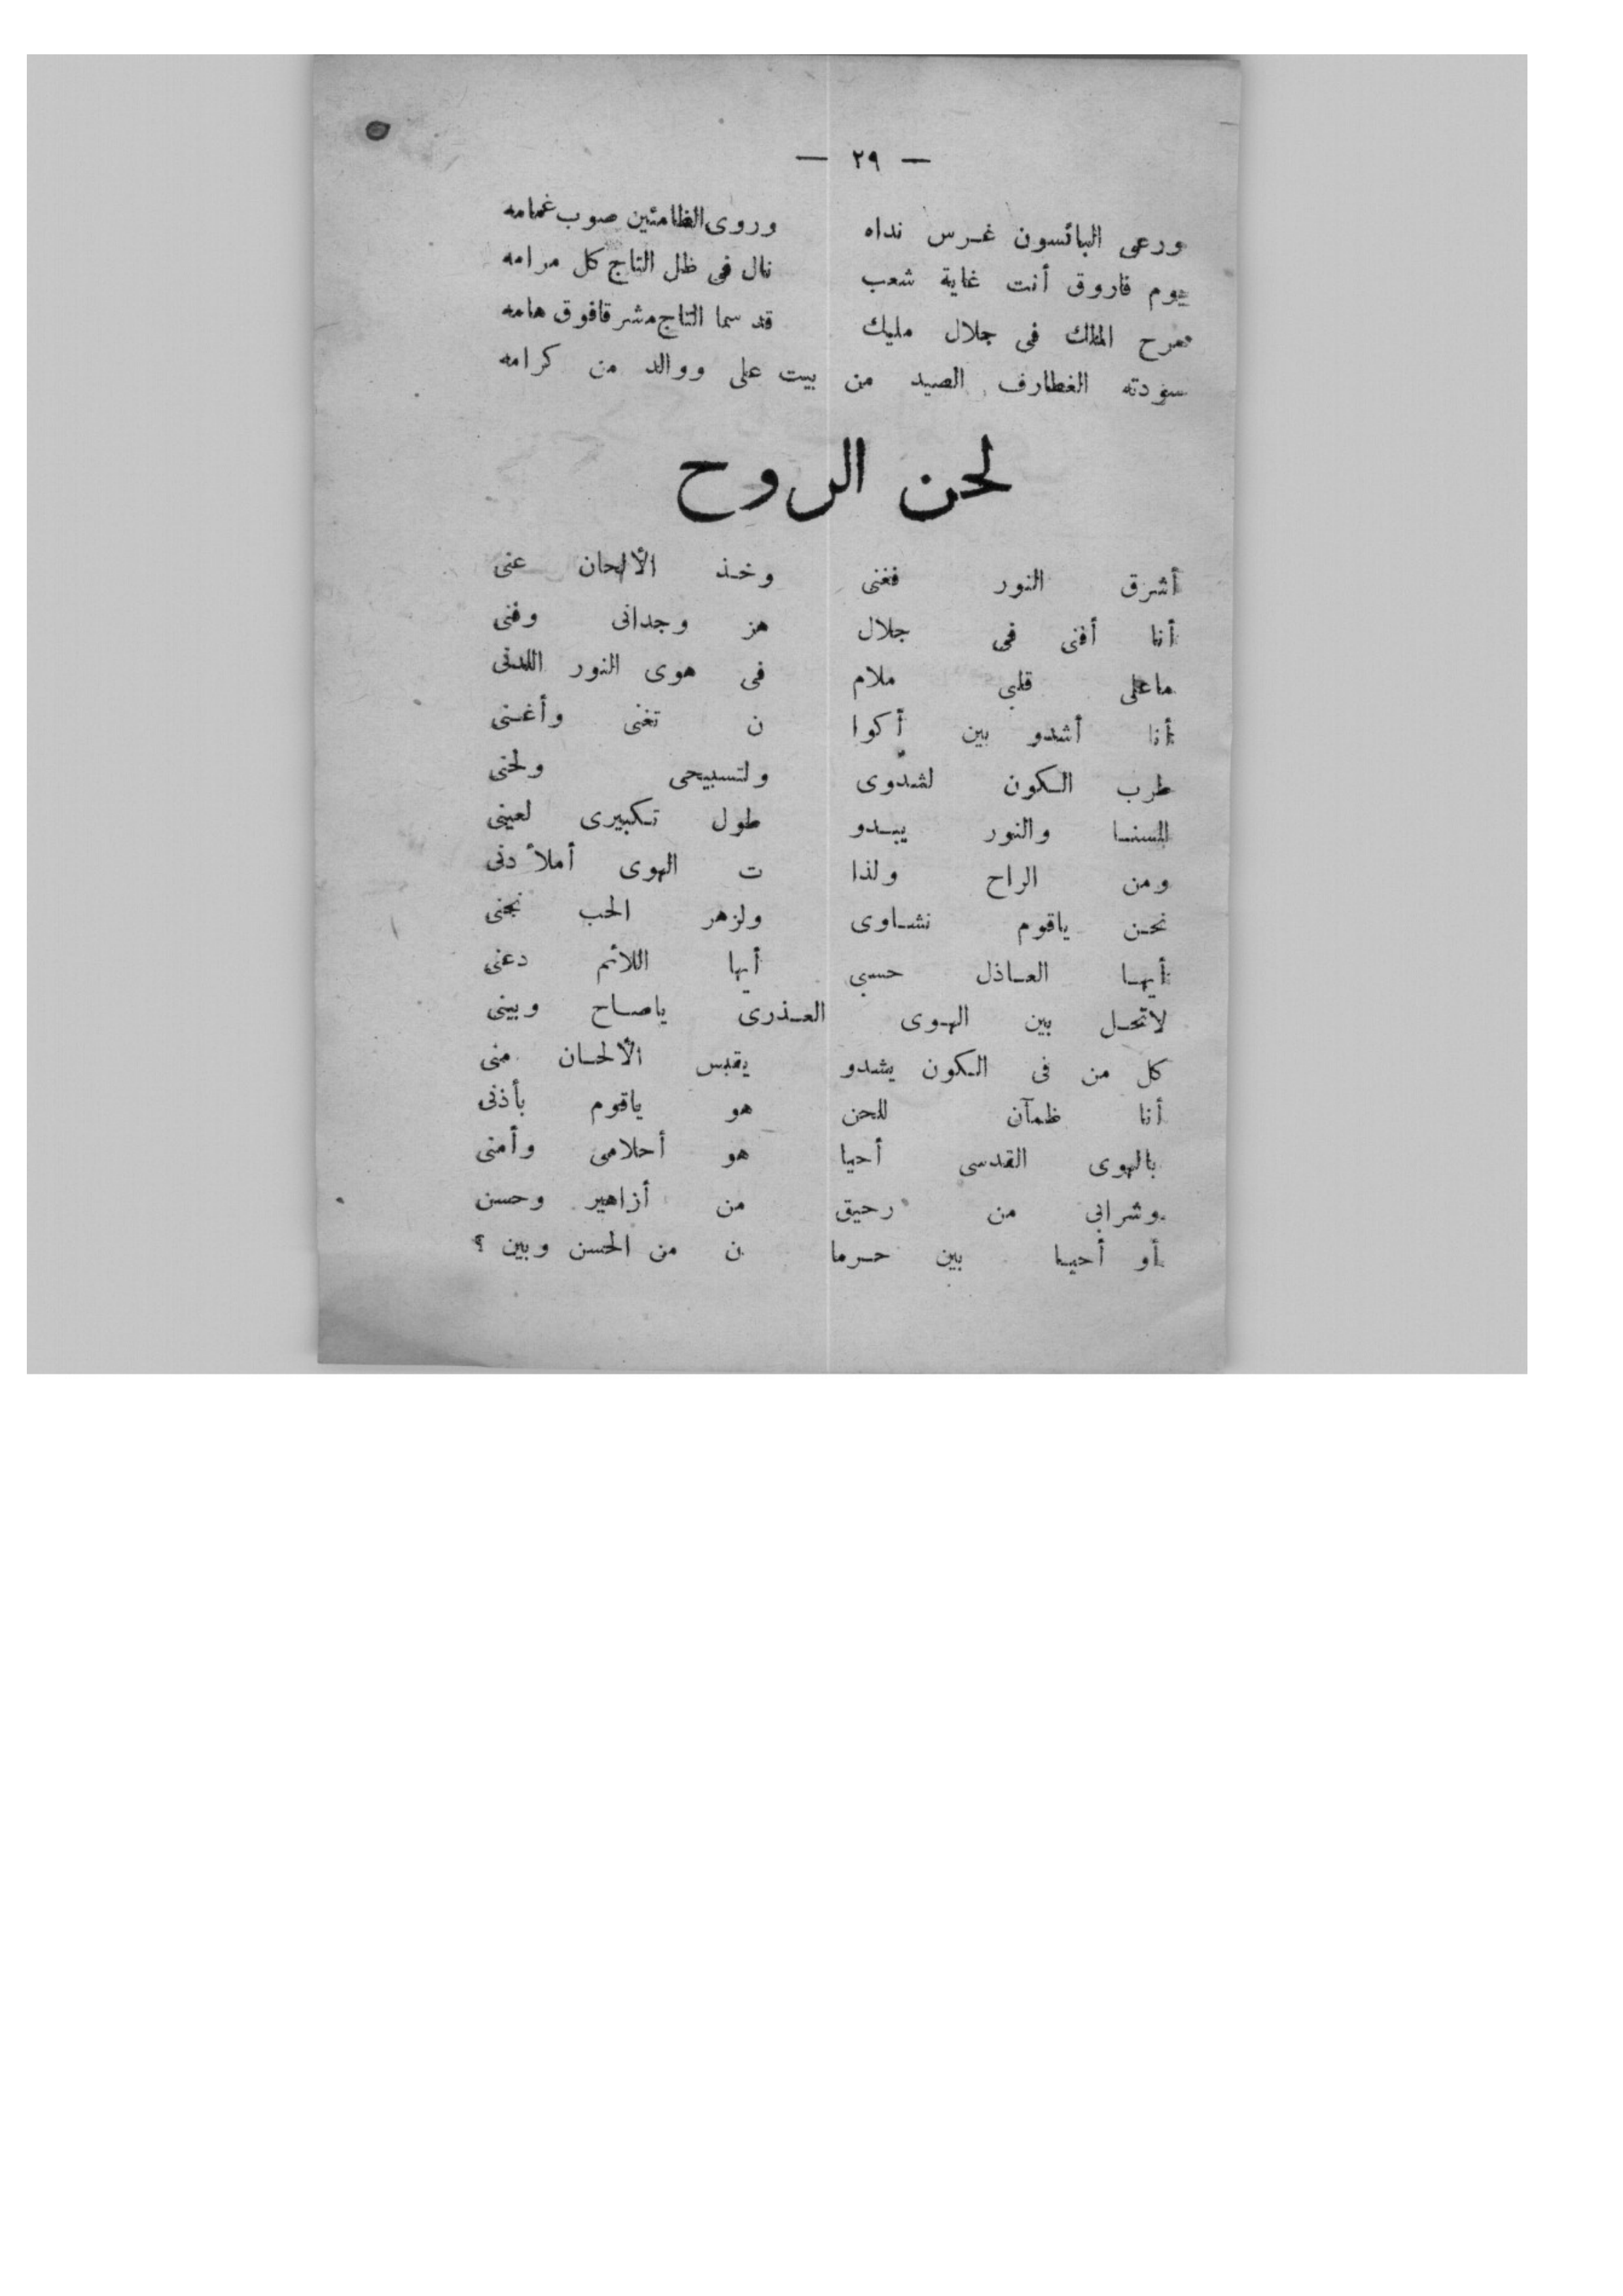 — ٢٩ —
ورعى البائسون غرس نداه وروى الظامئين صوب غمامه
يوم فاروق أنت غاية شعب نال فى ظل التاج كل مرامه
مرح الملك فى جلال مليك قد سما التاج مشرقا فوق هامه
سودته الغطارف الصيد من بيت على ووالد من كرامه
لحن الروح
أشرق النور فغنى وخذ الألحان عنى
أنا أفنى فى جلال هز وجدانى وفنى
ماعلى قلبى ملام فى هوى النور اللدنى
أنا أشدو بين أكوا ن تغنى وأغنى
طرب الكون لشدوى ولتسبيحى ولحنى
للسنا والنور يبدو طول تكبيرى لعينى
ومن الراح ولذا ت الهوى أملأ دنى
نحن ياقوم نشاوى ولزهر الحب نجنى
أيها العاذل حسبى أيها اللائم دعنى
لاتحل بين الهوى العذرى ياصاح وبينى
كل من فى الكون يشدو يقبس الألحان منى
أنا ظمآن للحن هو ياقوم بأذنى
بالهوى القدسى أحيا هو أحلامى وأمنى
وشرابى من رحيق من أزاهير وحسن
أو أحيا بين حرما ن من الحسن وبين ؟